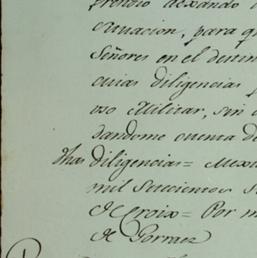 prendio dexando
ctuacion, para q
Señores en el de
cuias diligencias
uso Militar, sin
dandome cuenta de
thas diligencias= Mex
mil Setecientos S
de Croix= Por m
de Gorraez